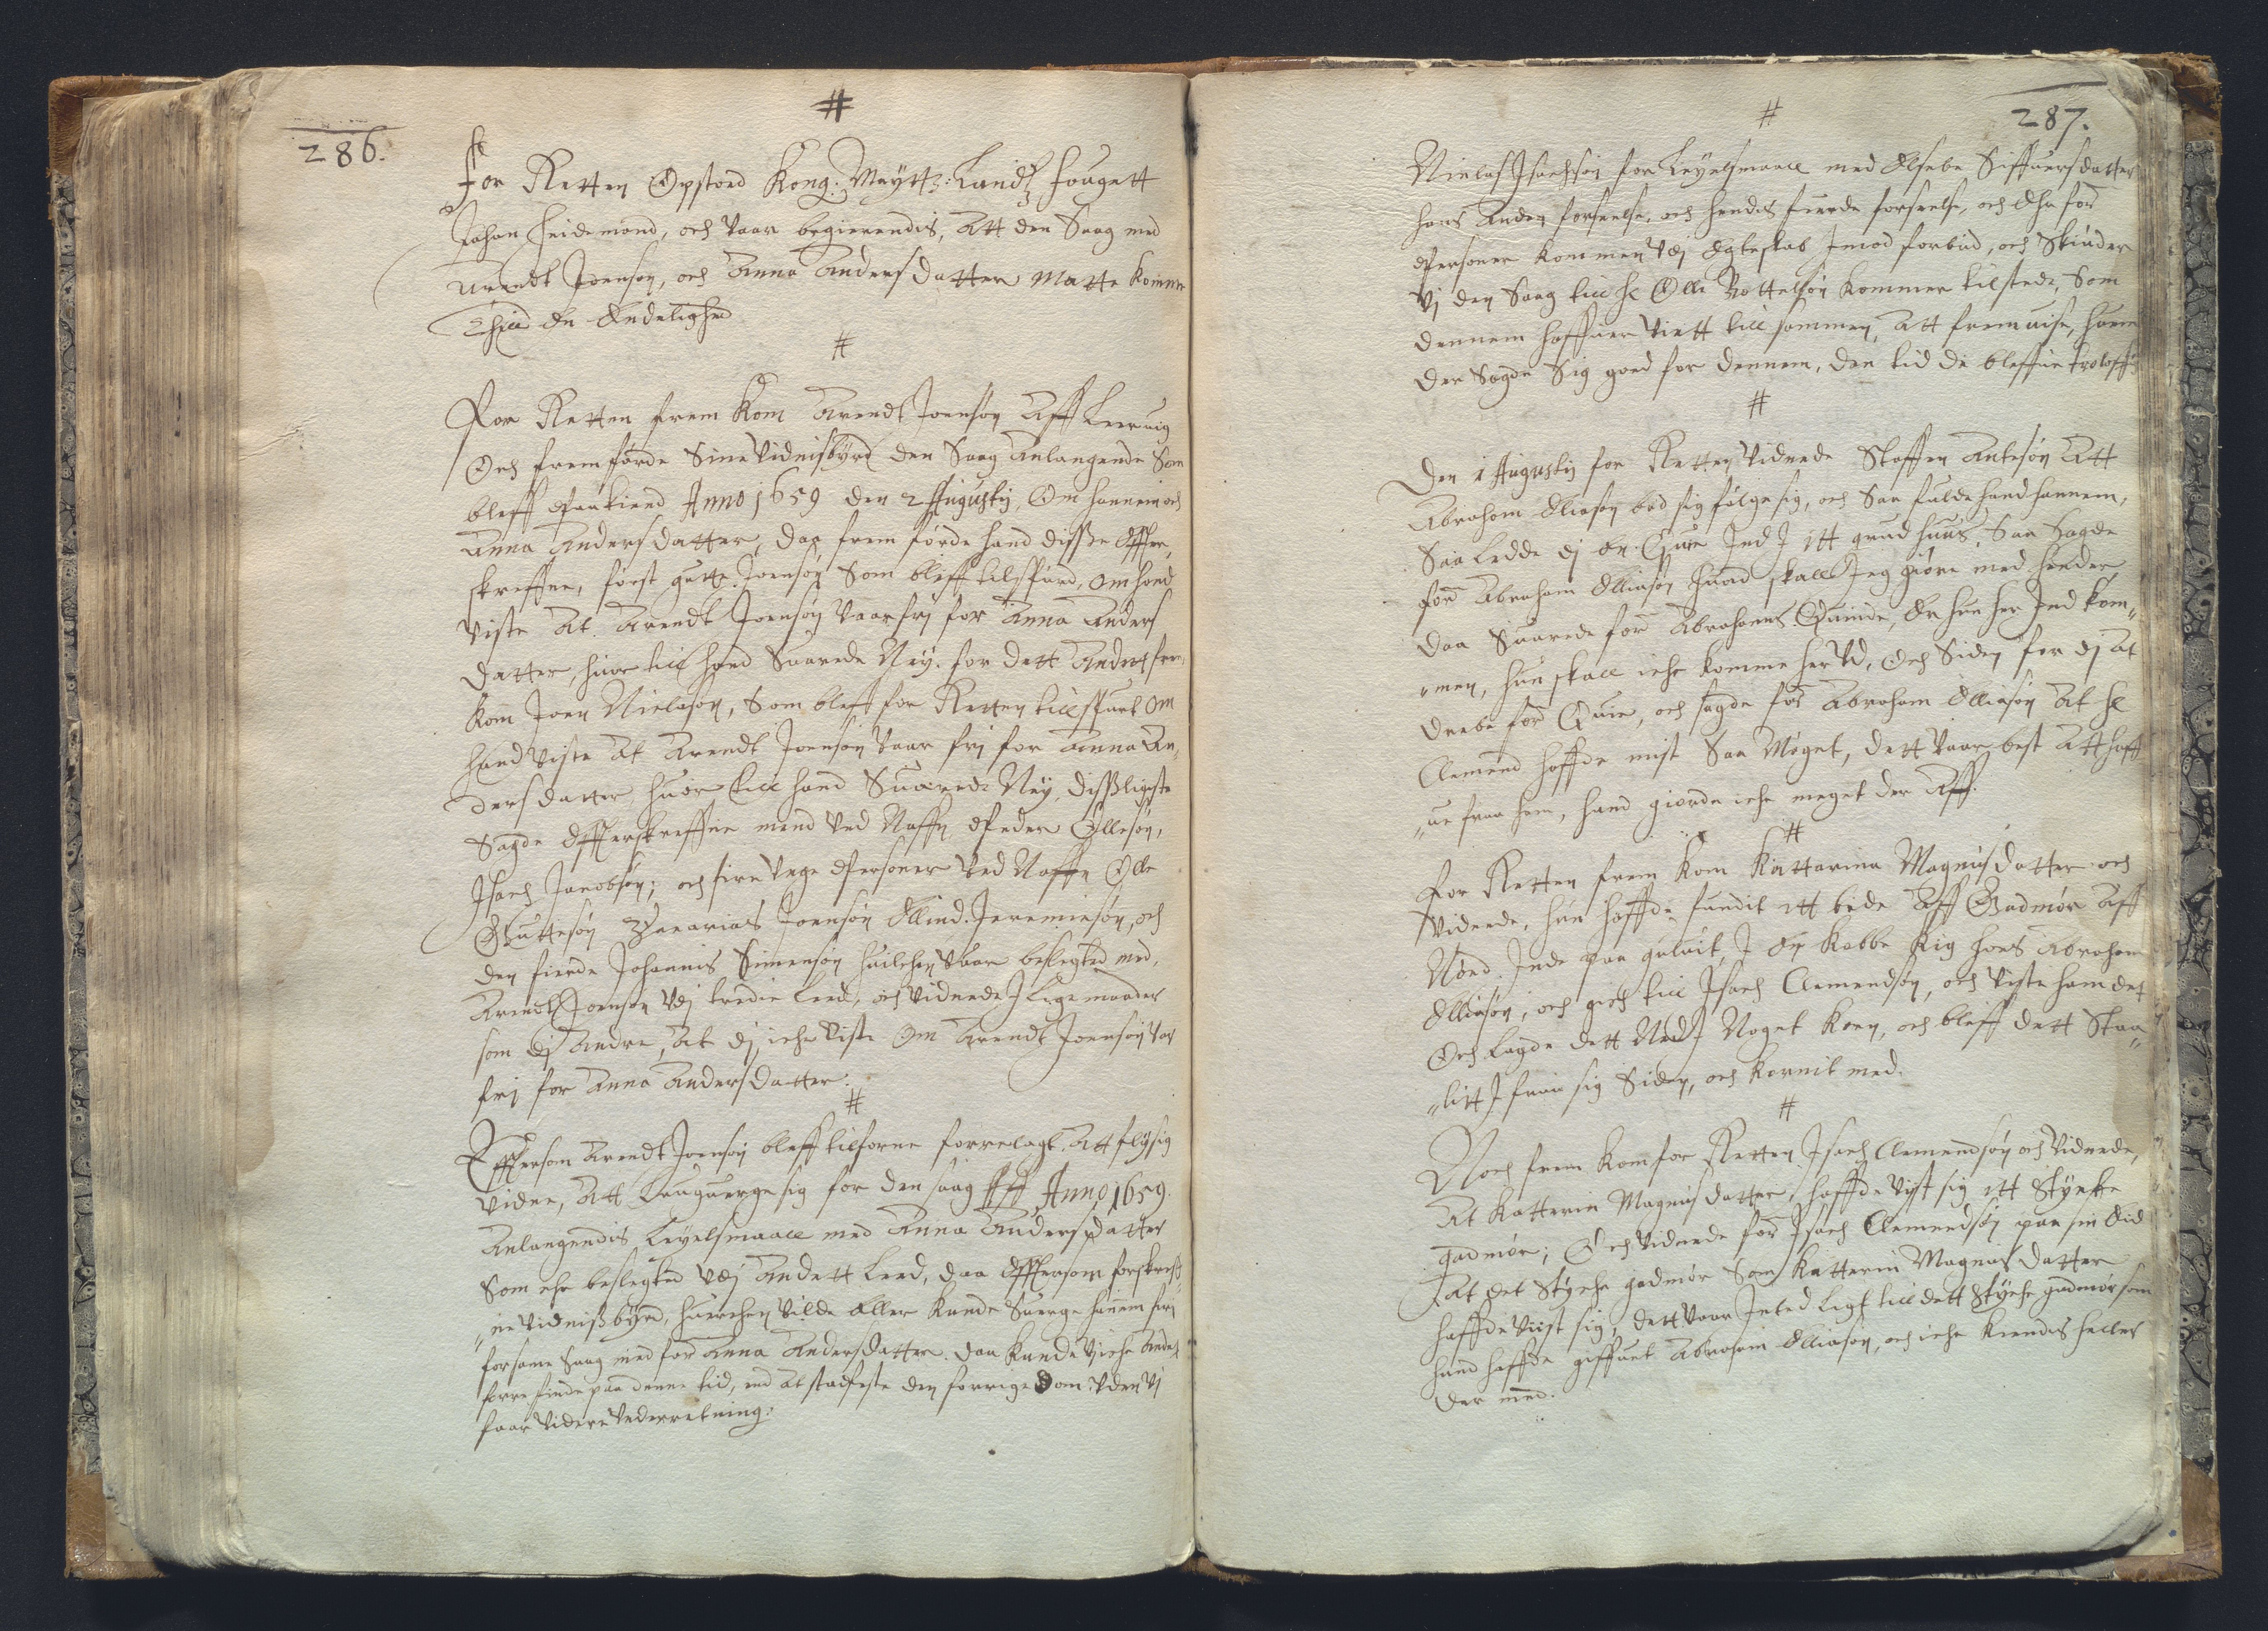 #
286.
For Retten Opstoed Kong: Mayttz: Landtz fougett
Johan Heidemand, och vaar begierendis, Att den Saag med
Arendt Joensøn, och Anna Andersdatter Matte komme
Thill En Endelighed
#
For Retten frem kom Arendt Joensøn Aff Leervig
Och fremførde Sine Vidnisbyrd den Saag Anlangende Som
bleff paakiend Anno 1659 den 2 Augustij, Om hannem och
Anna Andersdatter, da frem førde hand disse Effter,
skreffne, først gutte Joensøn Som bleff tilspurd, om hand
viste At Arendt Joensøn vaar frj for Anna Anders
datter, huor till hand Suarede Ney. for dett Andet frem
kom Joen Nielsøn, Som bleff for Retten till spurt Om
hand viste At Arendt Joensøn vaar frj for Anna An,,
dersdatter, huor till hand Suarede Ney, dissligeste
Sagde Effterskreffne mend ved Naffn Peder Ollesøn,
Isach Jacobsøn; och fire unge Personer ved Naffn Olle
Guttesøn Zacarias Joensøn Ellind Jeremiesøn, och
den fierde Johannis Simensøn huilchen vaar beslegted med,
Arendt Joensøn udj tredie Leed, och vidnede J Lige maader
som dj Andre, At dj iche viste Om Arendt Joensøn var
frj for Anna Andersdatter.
#
Effterson Arendt Joensøn bleff tilforne forrelagt Att fly sig
Vidne, Att Suerge sig for den saag Aff Anno 1659.
Anlangendis Leyelsmaall med Anna Andersdatter
Som ehr beslegted udj Andett Leed, daa Effterson forskreff
,,ne vidnissbyrd, huerchen vilde Eller kunde Suerge hannem frj
for same Saag med for Anna Andersdatter. daa kunde Vj iche Andet
forre finde paa denne tid, end At stadfeste den forrige dom uden Vj
faar Videre underretning.
#
287.
Niels Isachsøn for Leyelsmaall med Elsebe Siffuersdatter
hans Anden forseelse, och hendis fierde forseelse, och Ehr for
Personer kommen udj Egteskab Jmod forbud, och Skiuder
Vj den Saag till Hr Olle Bottelsøn kommer tilstede, Som
dennem haffuer Viett till sammen, Att fremuise, huem
der Sagde Sig goed for dennem, den tid de bleffue troloff,,
#
Den 1 Augustij for Retten vidnede Stoffen Antesøn Att
Abraham Elliasøn bad sig følge sig, och Saa fulde hand hannem,
Saa Ledde dj En Quie Jnd J itt grud huus, Saa Sagde
for Abraham Elliasøn huad skall Jeg giøre med hender,
daa Suarede for Abrahams Quinde, Er hun her Jnd kom,,
,,men, hun skall iche komme her Ud, Och Siden for dj at
drebe for Quie, och sagde for Abraham Elliasøn At Hr
Clemend haffde mist Saa Møget, dett vaar best Att haff
,,ue fraa ham, hand giorde iche meget der Aff.
#
For Retten frem kom Kattarina Magnusdatter och
Vidnede, hun haffde fundit itt bede Aff Gadmør Aff
Nord. Inde paa guluit, J En Kobbe Rig hoes Abraham
Elliasøn, och gick till Isach Clemendsøn, och viste ham det
Och Lagde dett Ned J Noget Koen, och bleff dett Staa,,
,,litt J fraa sig Siden, och kornit med.
#
Noch frem kom for Retten Isach Clemendsøn och vidnede,
At Katterin Magnusdatter, haffde vist sig itt Stycke
gadmør; Och vidnede for Isach Clemendsøn paa sin Eid
At det Stycke gadmør Som Katterin Magnusdatter
haffde viist sig, dett vaar Inted Ligt till dett Stycke gadmør som
hand haffde giffuet Abraham Elliasøn, och iche kiendis heller
der med.